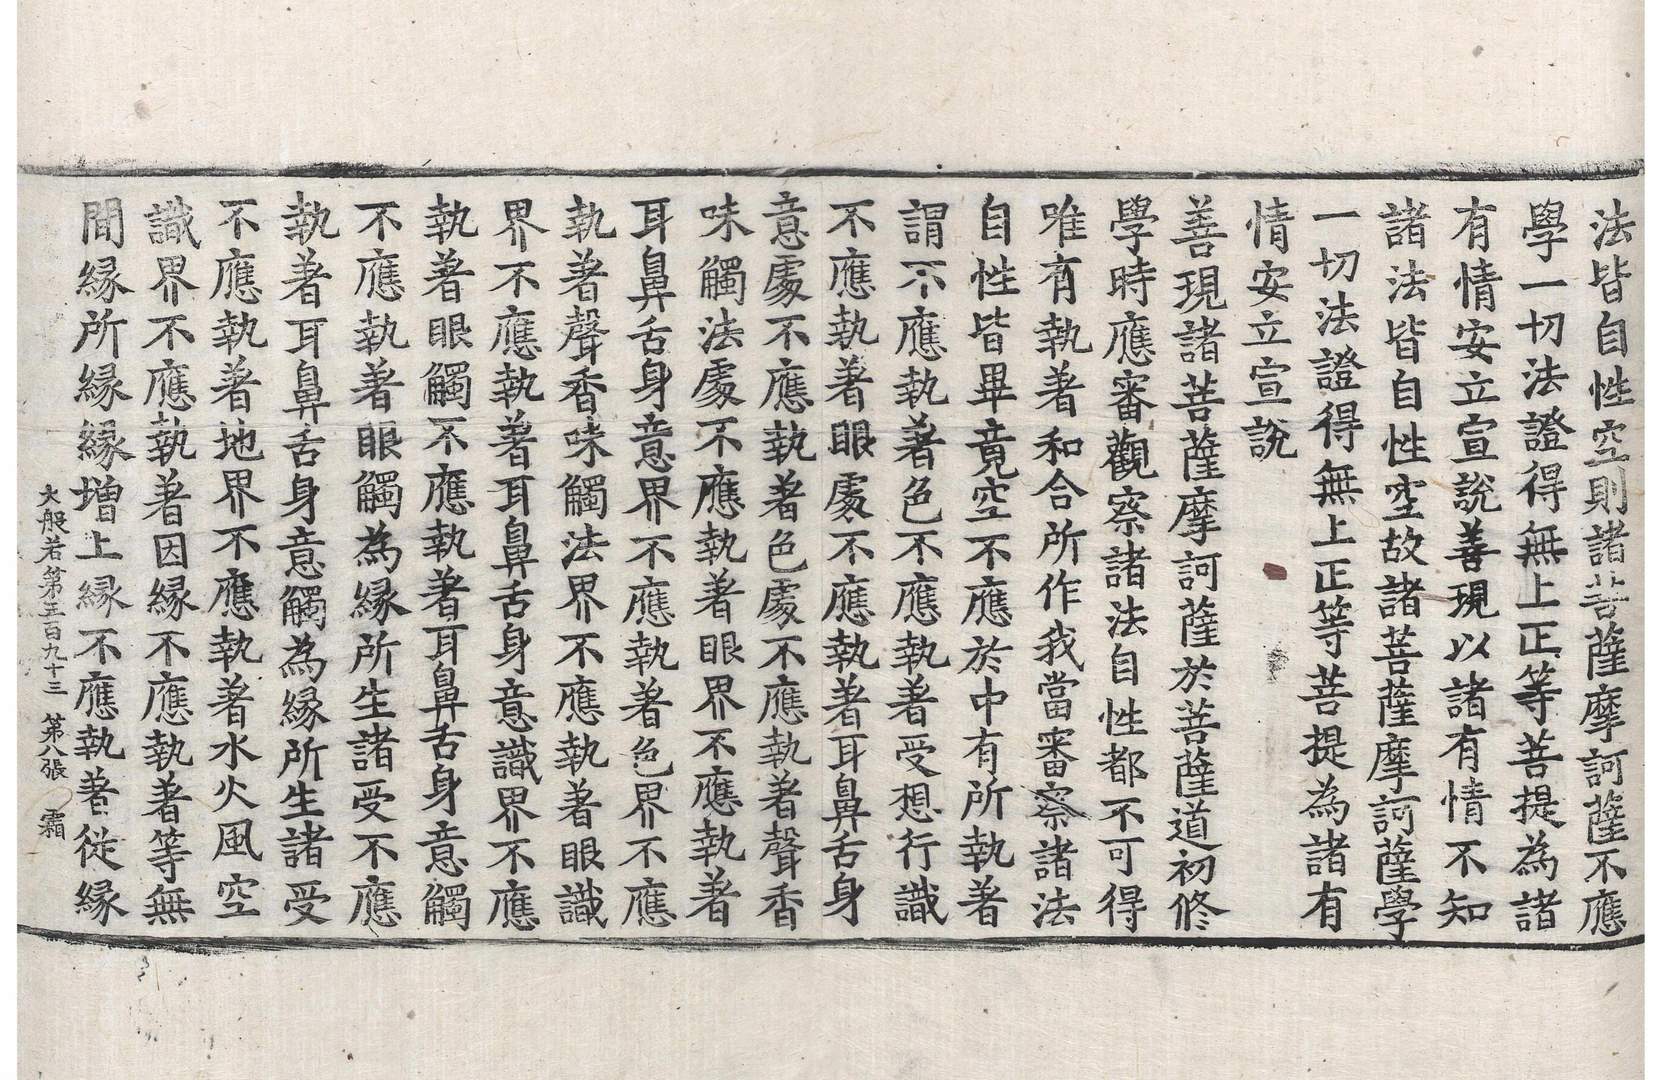 法皆自性空則諸菩薩摩訶薩不應
學一切法證得無上正等菩提為諸
有情安立宣說善現以諸有情不知
諸法皆自性空故諸菩薩摩訶薩學
一切法證得無上正等菩提為諸有
情安立宣說
善現諸菩薩摩訶薩於菩薩道初修
學時應審觀察諸法自性都不可得
唯有執著和合所作我當審察諸法
自性皆畢竟空不應於中有所執著
謂不應執著色不應執著受想行識
不應執著眼處不應執著耳鼻舌身
意處不應執著色處不應執著聲香
味觸法處不應執著眼界不應執著
耳鼻舌身意界不應執著色界不應
執著聲香味觸法界不應執著眼識
界不應執著耳鼻舌身意識界不應
執著眼觸不應執著耳鼻舌身意觸
不應執著眼觸為緣所生諸受不應
執著耳鼻舌身意觸為緣所生諸受
不應執著地界不應執著水火風空
識界不應執著因緣不應執著等無
間緣所緣緣增上緣不應執著從緣
大般若第三百九十三　第八張　霜